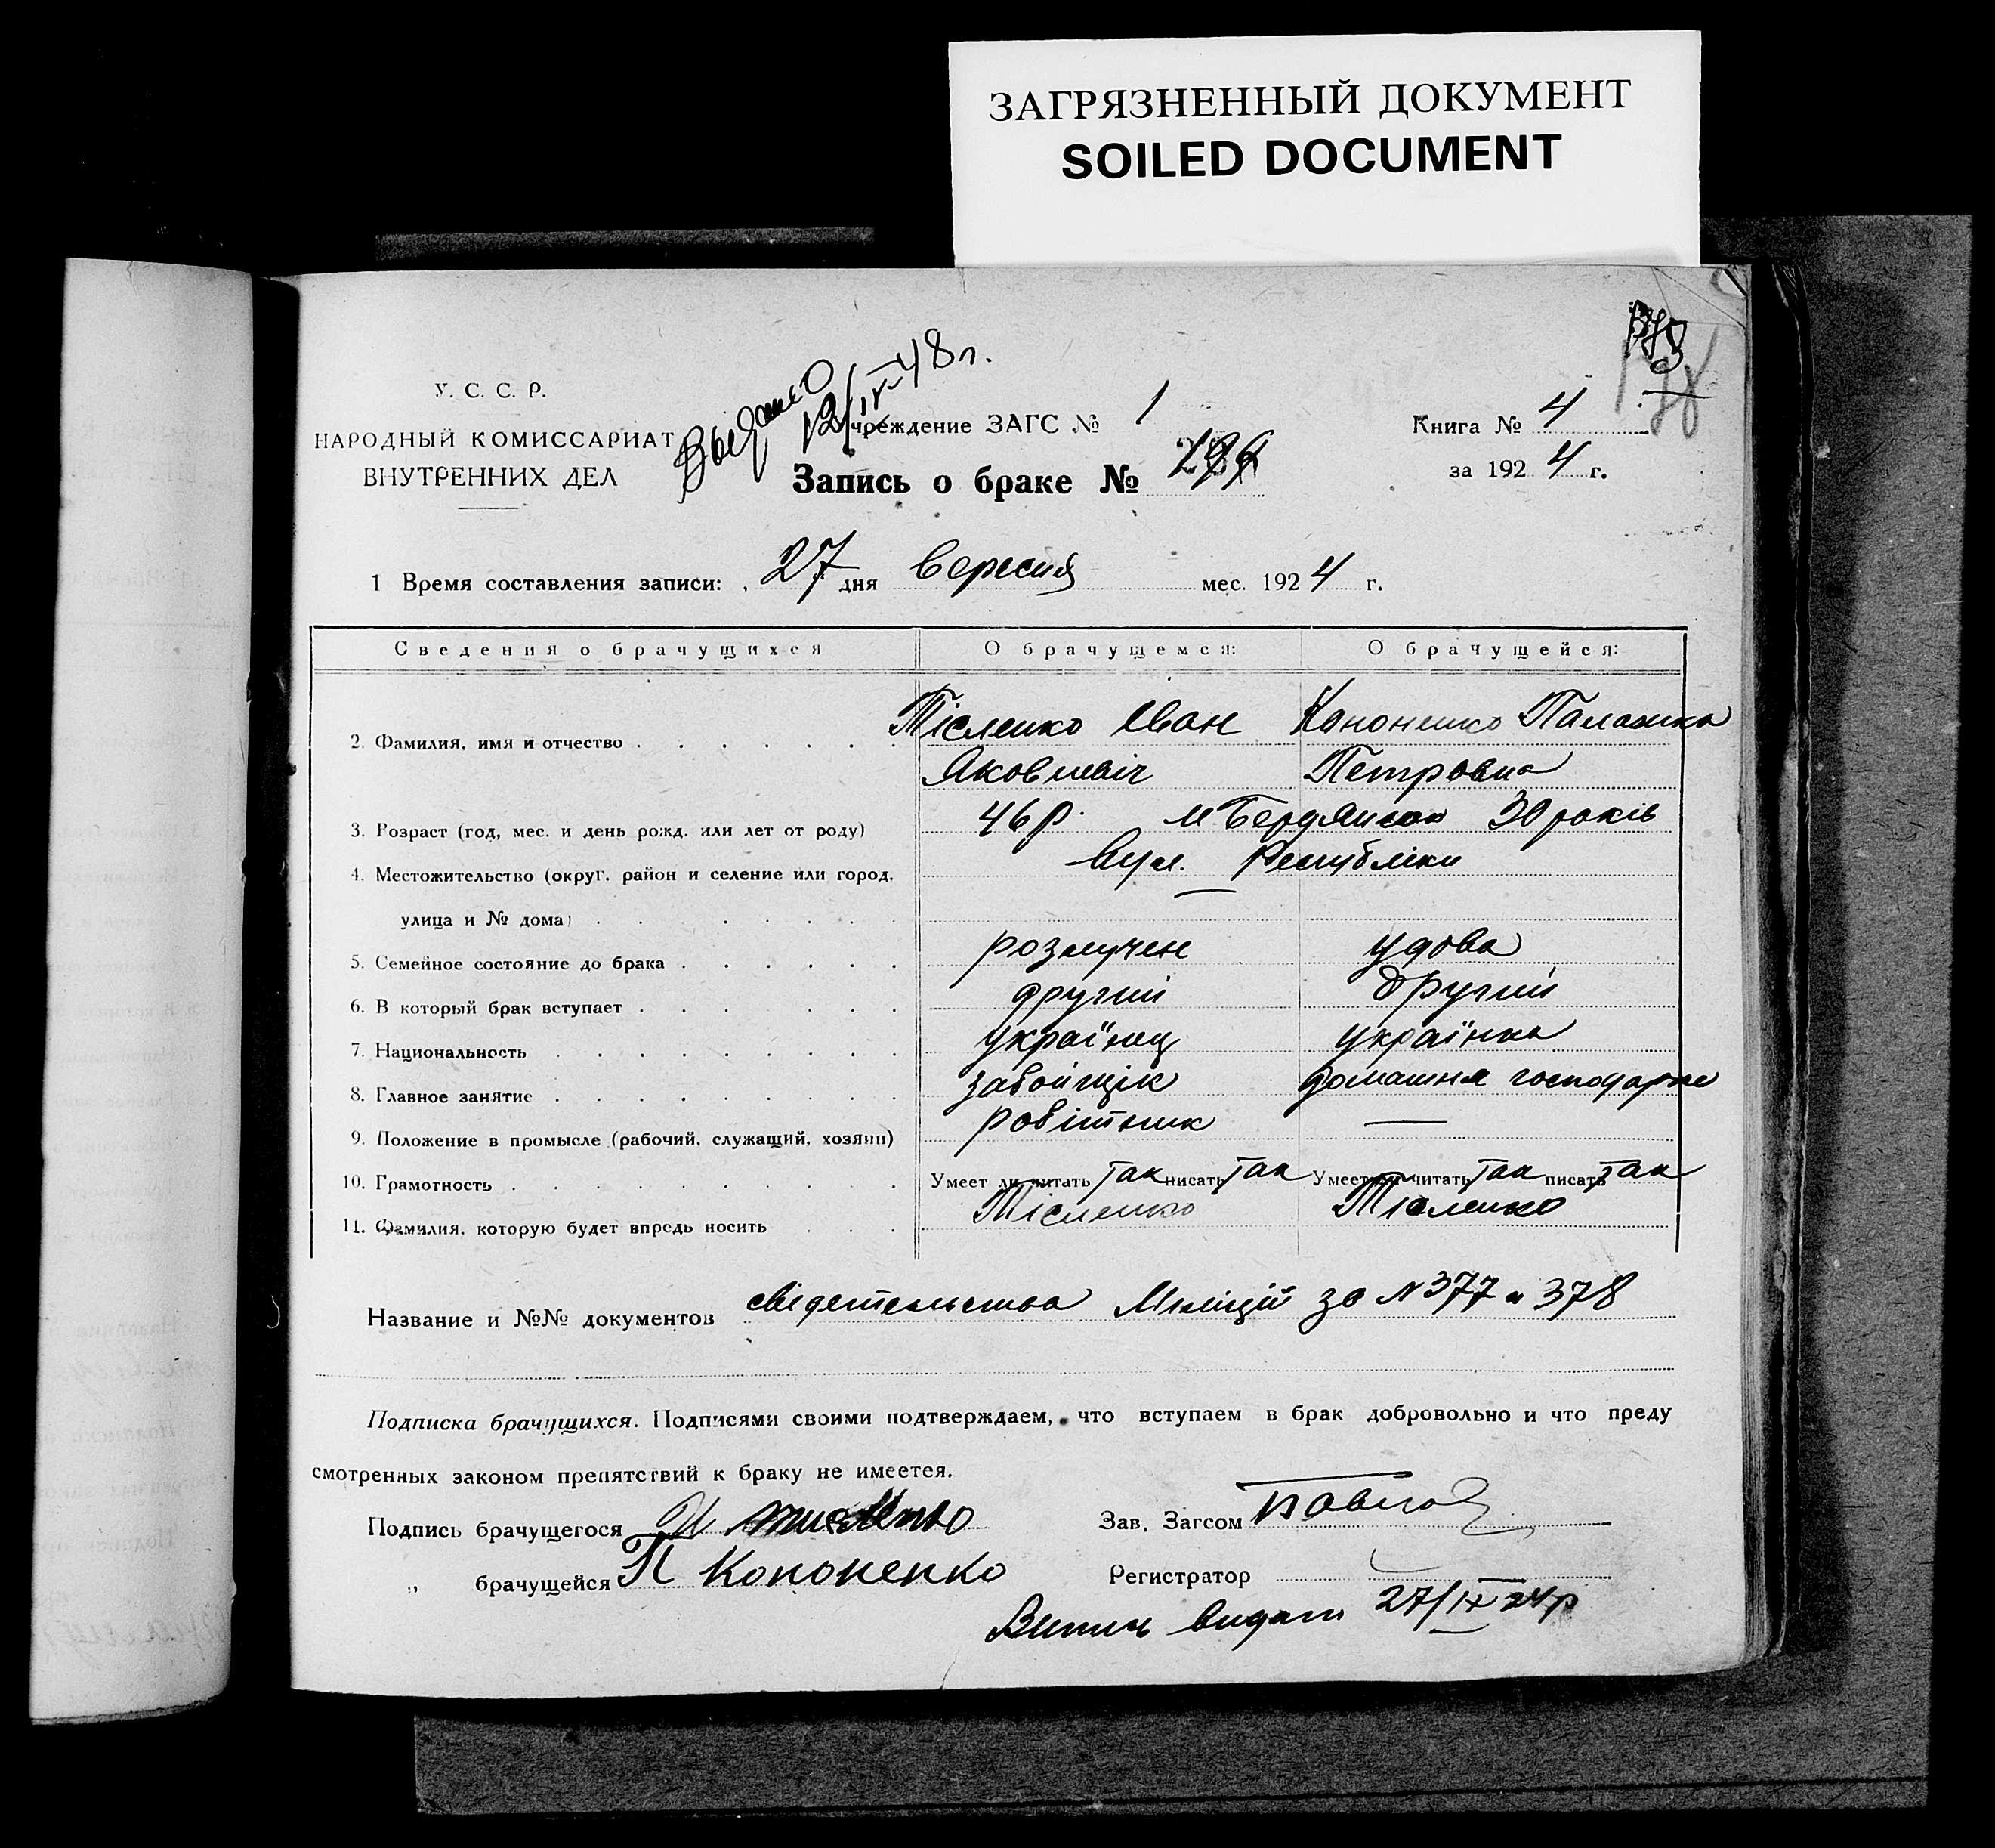 ЗАГРЯЗНЕННЫЙ ДОКУМЕНТ
SOILED DOCUMENT
У. С. С. Р.
НАРОДНЫЙ КОМИССАРИАТ
ВНУТРЕННИХ ДЕЛ
Выдано
12/IV-48 г.
чреждение ЗАГС № 1
Запись о браке №
Книга № 4
за 1924 г.
1 Время составления записи: 27 дня вересня мес. 1924 г.
Сведения о брачущихся О брачущемся: О брачущейся:
2. Фамилия, имя и отчество Тісленко Іван Кононенко Палажка
Яковлевіч Петровна
3. Возраст (год, мес. и день рожд. или лет от роду) 46 р. м Бердянськ 30 років
4. Местожительство (округ. район и селение или город, вул. Республіки
улица и № дома)
5. Семейное состояние до брака розлучен удова
6. В который брак вступает другий другий
7. Национальность українец українка
8. Главное занятие забойщік домашня господарка
9. Положение в промысле (рабочий, служащий, хозяин) робітник —
10. Грамотность Умеет ли читать так писать так Умеет ли читать так писать так
11. Фамилия, которую будет впредь носить Тісленко Тісленко
Название и №№ документов свідетельства Міліції за N 377 и 378
Подписка брачущихся. Подписями своими подтверждаем, что вступаем в брак добровольно и что преду
смотренных законом препятствий к браку не имеется.
Подпись брачущегося Зав. Загсом
„ брачущейся П Кононенко Регистратор
Витяг видат 27/IX 24 р